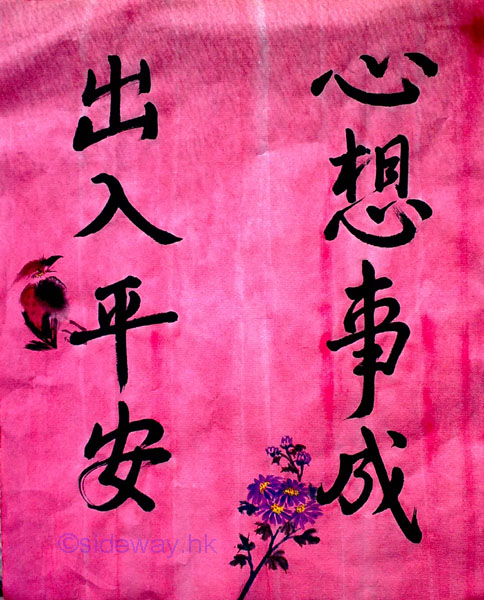 心想事成
出入平安
©sideway.hk